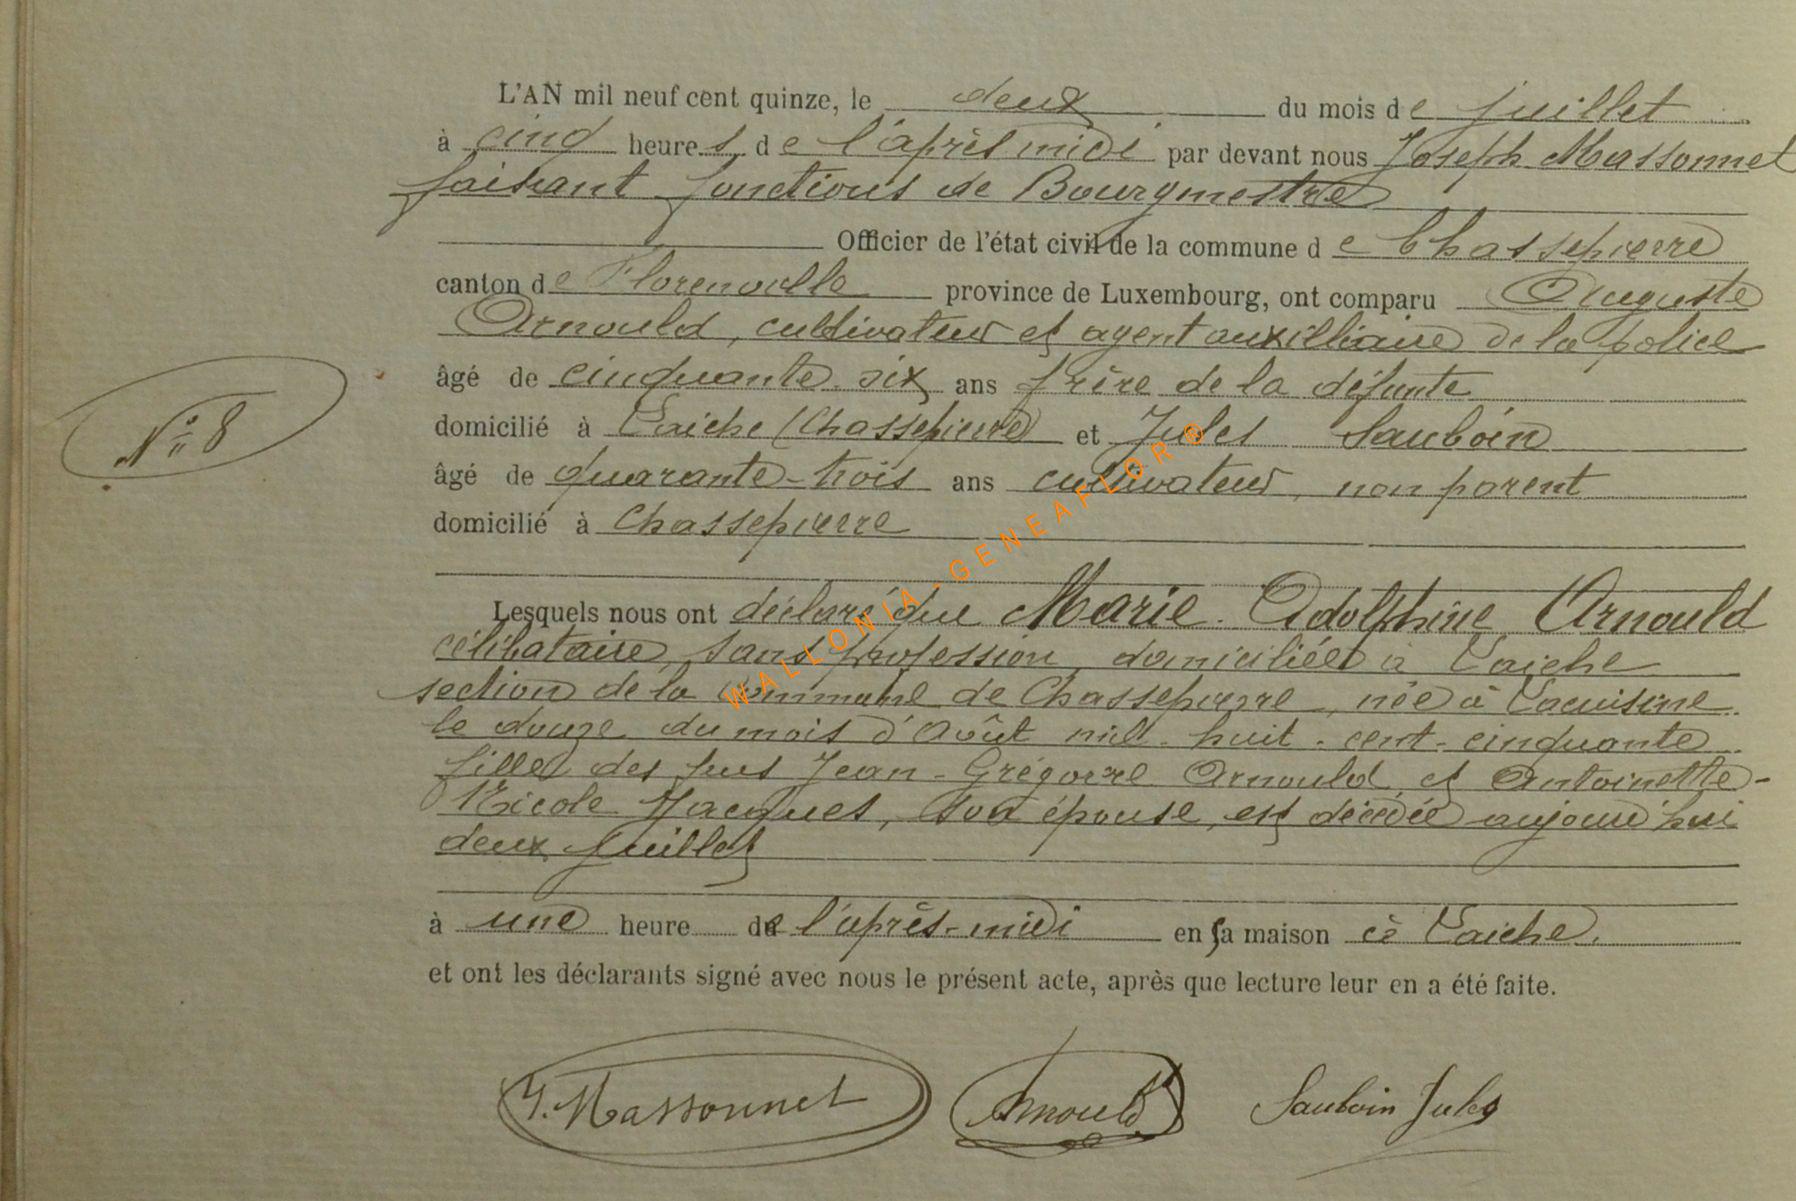 L'AN mil neuf cent quinze, le deux du mois de juillet
à cinq heures de l'après midi par devant nous Joseph Massonnet
faisant fonctions de Bourgmestre
Officier de l'état civil de la commune de Chassepierre
canton de Florenville province de Luxembourg, ont comparu Auguste
Arnould, cultivateur et agent auxilliaire de la police
âgé de cinquante-six ans frère de la défunte
N° 8
domicilié à Laiche (Chassepierre) et Jules Sauboin
âgé de quarante-trois ans cultivateur, non parent
domicilié à Chassepierre
Lesquels nous ont déclaré que Marie-Adolphine Arnould
célibataire, sans profession, domiciliée à Laiche
section de la commune de Chassepierre, née à Lacuisine
le douze du mois d'Août mil-huit-cent-cinquante
fille des feus Jean-Grégoire Arnould, et Antoinette-
Nicole Jacques, son épouse, est décédée aujourd'hui
deux juillet
à une heure de l'après-midi en sa maison à Laiche.
et ont les déclarants signé avec nous le présent acte, après que lecture leur en a été faite.
J. Massonnet Arnould Sauboin Jules
WALLONIA-GENEAFLOR ®